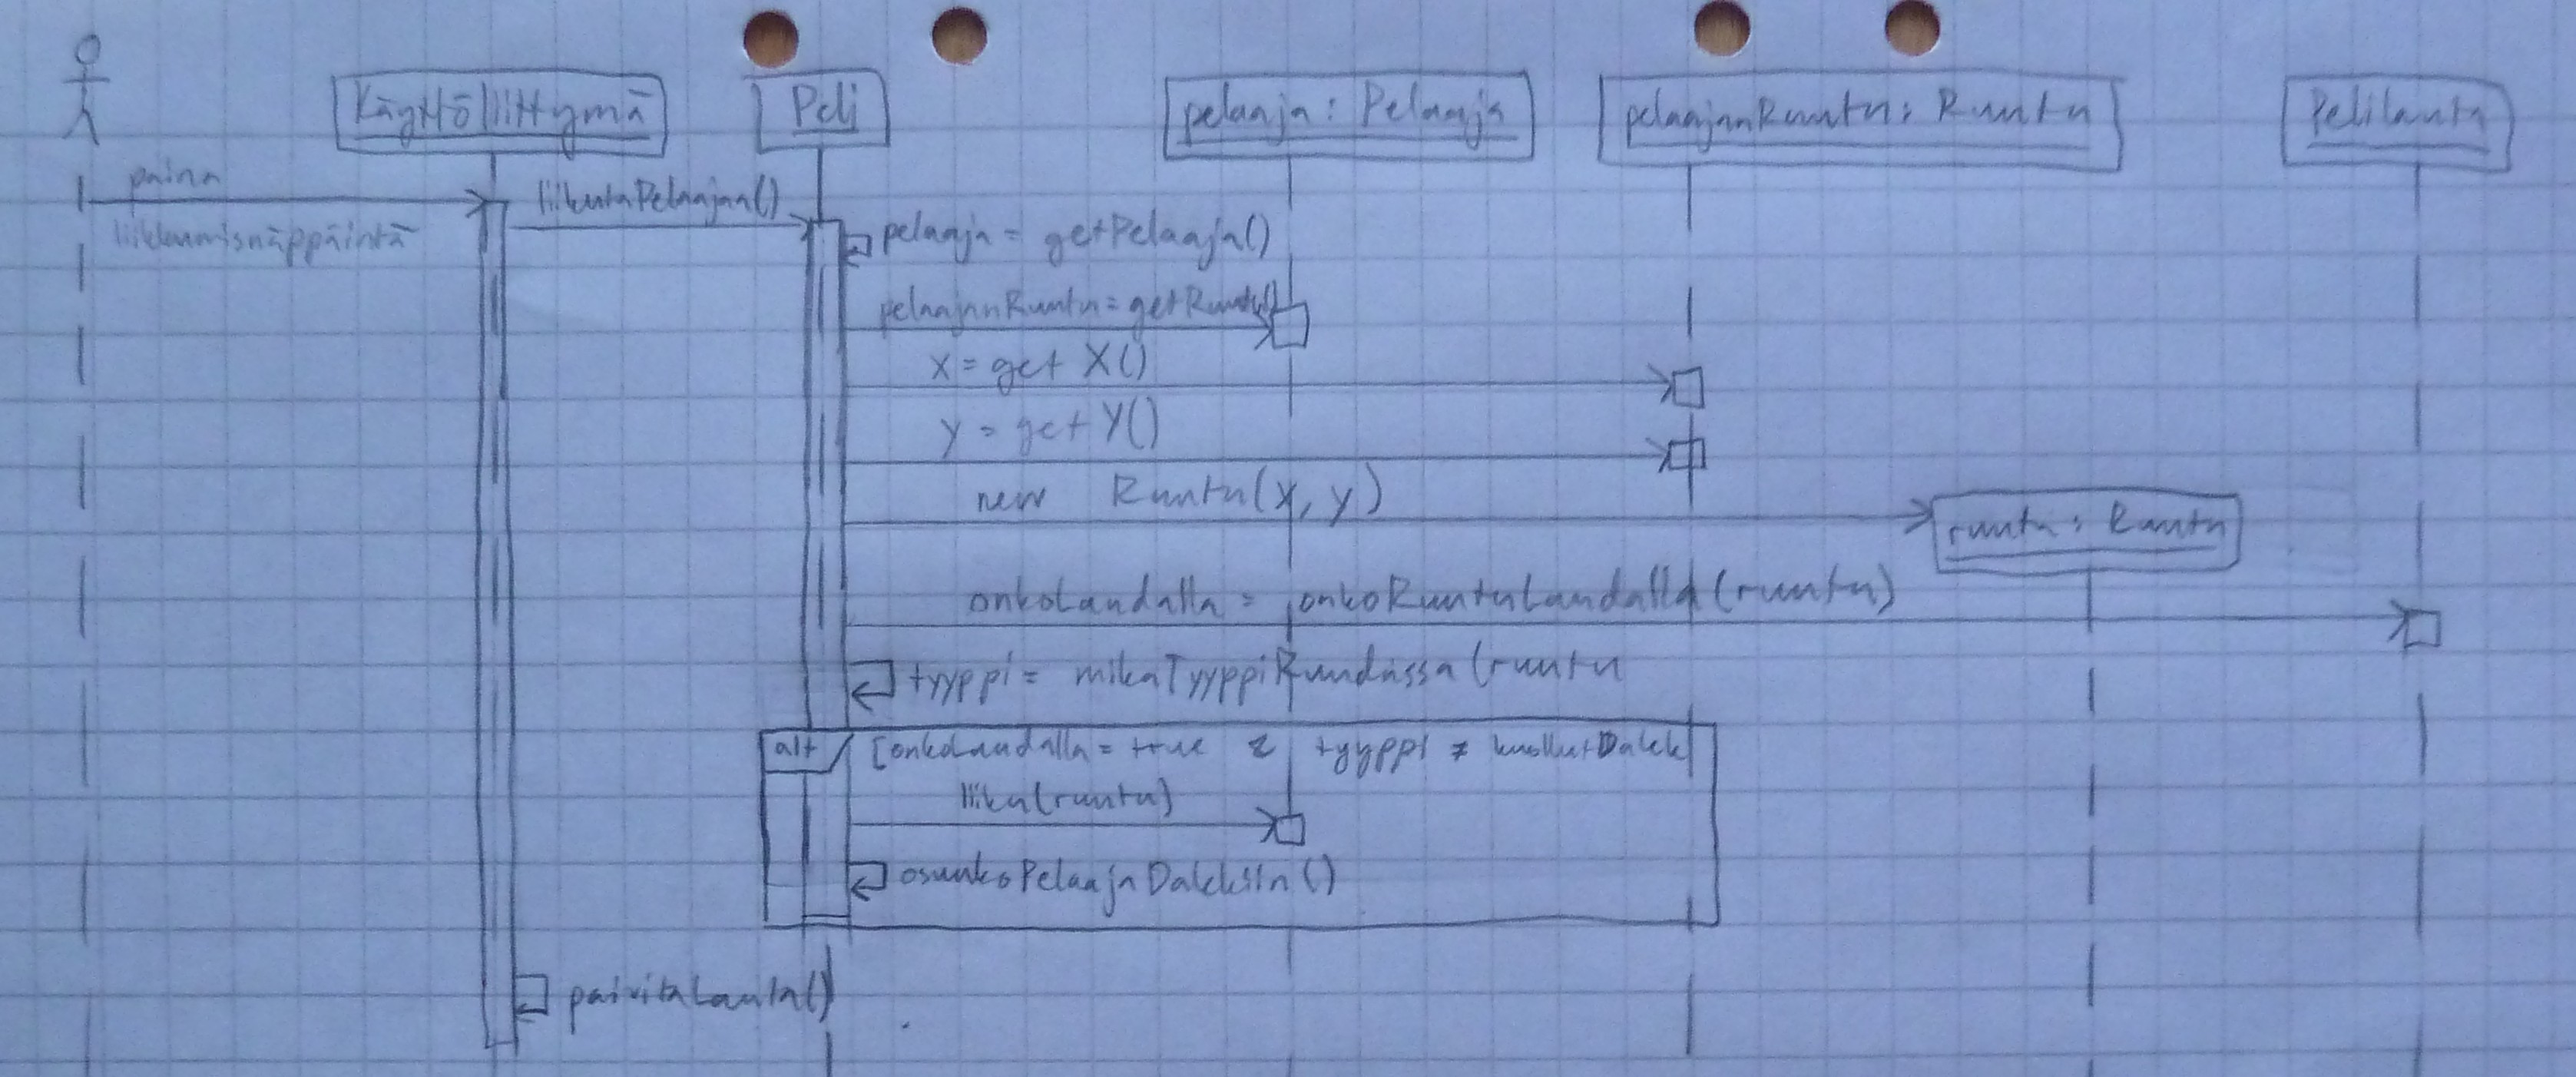 Käyttöliittymä
Peli
pelaaja: Pelaaja
pelaajanRuutu: Ruutu
Pelilauta
paina
liikkumisnäppäintä
liikutaPelaajaa()
pelaaja = getPelaaja()
pelaajanRuutu = getRuutu()
x = get X()
y = get Y()
new Ruutu(x, y)
ruutu: Ruutu
onkoLaudalla = onkoRuutuLaudalla(ruutu)
tyyppi = mikaTyyppiRuudussa(ruutu
alt
[onkoLaudalla = true & tyyppi ≠ kuollutDalek]
liiku(ruutu)
osuukoPelaajaDalekiin()
paivitaLauta()